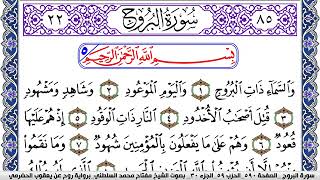 ٨٥ سُورَةُ البُرُوجِ ٢٢
بِسْمِ اللَّهِ الرَّحْمَٰنِ الرَّحِيمِ
وَالسَّمَآءِ ذَاتِ الْبُرُوجِ ١ وَالْيَوْمِ الْمَوْعُودِ ٢ وَشَاهِدٍ وَمَشْهُودٍ
٣ قُتِلَ أَصْحَٰبُ الْأُخْدُودِ ٤ النَّارِ ذَاتِ الْوَقُودِ ٥ إِذْ هُمْ عَلَيْهَا
قُعُودٌ ٦ وَهُمْ عَلَىٰ مَا يَفْعَلُونَ بِالْمُؤْمِنِينَ شُهُودٌ ٧ وَمَا نَقَمُوا
سورة البروج . الصفحة ٥٩٠ . الجزء ٣٠ . بصوت الشيخ مفتاح محمد السلطني . برواية روح عن يعقوب الحضرمي